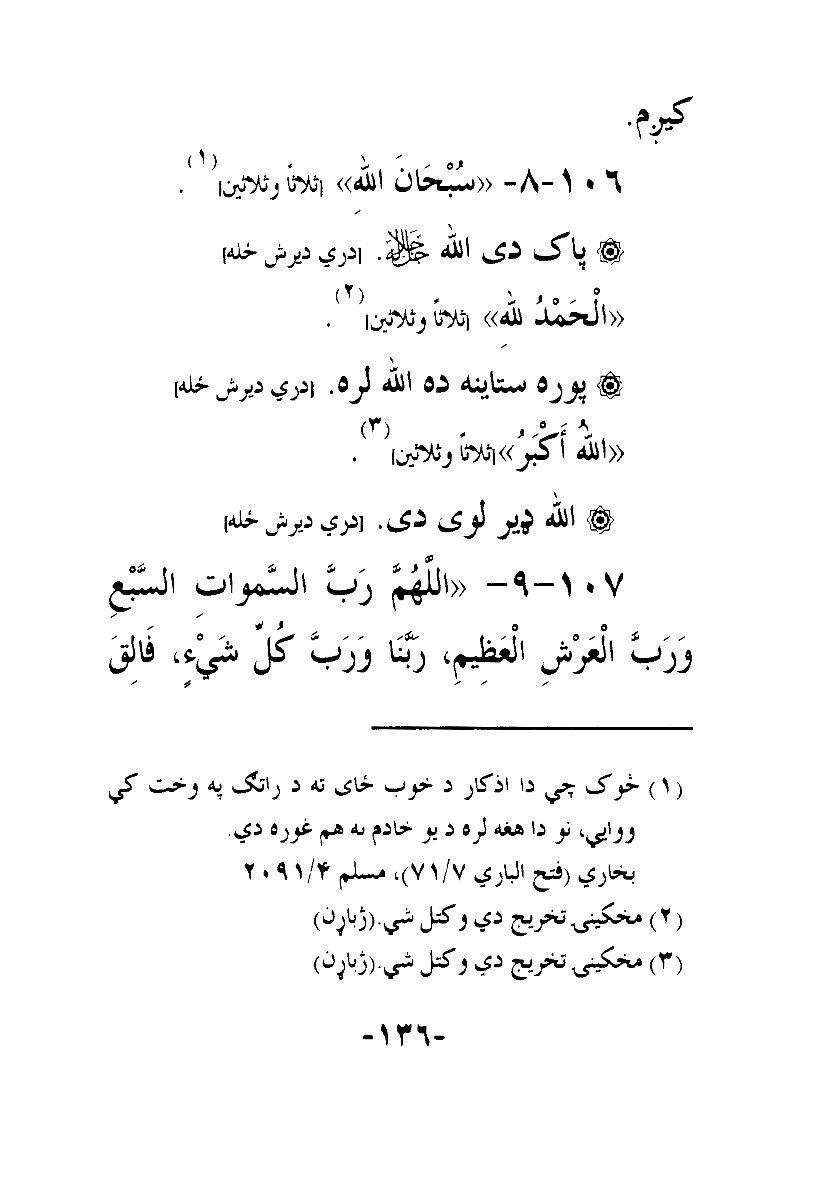 کیږم.
١٠٦-٨- «سُبْحَانَ اللهِ» [ثلاثاً وثلاثين](١).
۞ پاک دی الله ﷻ. [دري دیرش ځله]
«الْحَمْدُ للهِ» [ثلاثاً وثلاثين](٢).
۞ پوره ستاینه ده الله لره. [دري دیرش ځله]
«اللهُ أَكْبَرُ» [ثلاثاً وثلاثين](٣).
۞ الله ډیر لوی دی. [دري دیرش ځله]
١٠٧-٩- «اللَّهُمَّ رَبَّ السَّمواتِ السَّبْعِ
وَرَبَّ الْعَرْشِ الْعَظِيمِ، رَبَّنَا وَرَبَّ كُلِّ شَيْءٍ، فَالِقَ
(١) څوک چي دا اذکار د خوب ځای ته د راتګ په وخت کي
ووایي، نو دا هغه لره د یو خادم نه هم غوره دي.
بخاري (فتح الباري ٧١/٧)، مسلم ٢٠٩١/۴
(٢) مخکینۍ تخریج دي وکتل شي.(ژباړن)
(٣) مخکینۍ تخریج دي وکتل شي.(ژباړن)
-١٣٦-